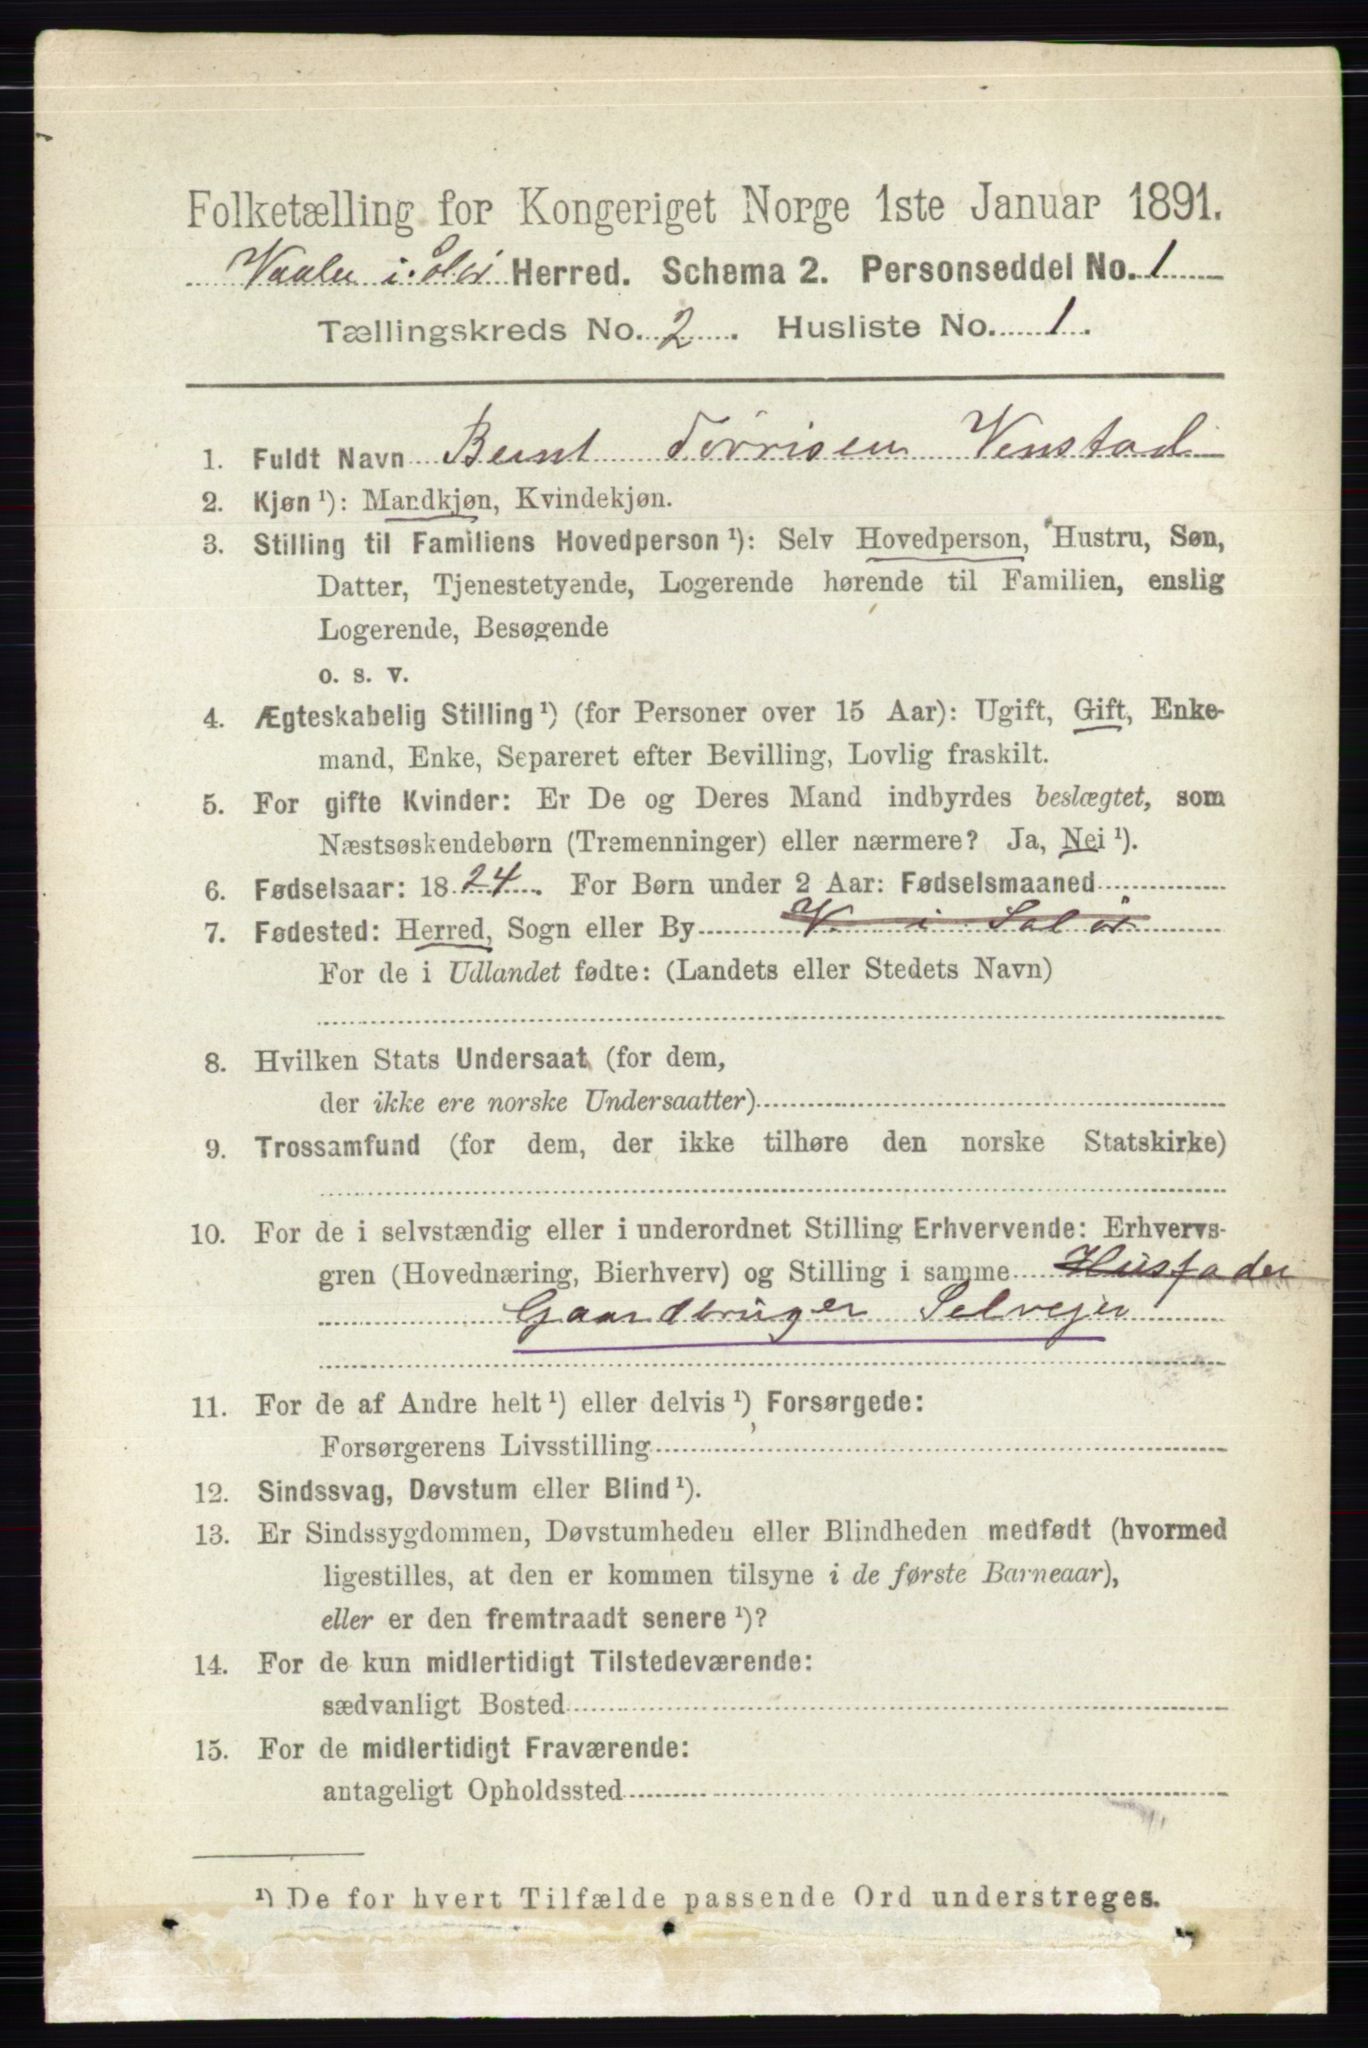 Folketælling for Kongeriget Norge 1ste Januar 1891.
Vaaler i Solør Herred. Schema 2. Personseddel No. 1
Tællingskreds No. 2. Husliste No. 1.
1. Fuldt Navn Bernt Torrisen Venstad
2. Kjøn ¹): Mandkjøn, Kvindekjøn.
3. Stilling til Familiens Hovedperson ¹): Selv Hovedperson, Hustru, Søn,
Datter, Tjenestetyende, Logerende hørende til Familien, enslig
Logerende, Besøgende
o. s. v.
4. Ægteskabelig Stilling ¹) (for Personer over 15 Aar): Ugift, Gift, Enke-
mand, Enke, Separeret efter Bevilling, Lovlig fraskilt.
5. For gifte Kvinder: Er De og Deres Mand indbyrdes beslægtet, som
Næstsøskendebørn (Tremenninger) eller nærmere? Ja, Nei ¹).
6. Fødselsaar: 1824. For Børn under 2 Aar: Fødselsmaaned
7. Fødested: Herred, Sogn eller By V i Solør
For de i Udlandet fødte: (Landets eller Stedets Navn)
8. Hvilken Stats Undersaat (for dem,
der ikke ere norske Undersaatter)
9. Trossamfund (for dem, der ikke tilhøre den norske Statskirke)
10. For de i selvstændig eller i underordnet Stilling Erhvervende: Erhvervs-
gren (Hovednæring, Bierhverv) og Stilling i samme Husfader
Gaardbruger Selvejer
11. For de af Andre helt ¹) eller delvis ¹) Forsørgede:
Forsørgerens Livsstilling
12. Sindssvag, Døvstum eller Blind ¹).
13. Er Sindssygdommen, Døvstumheden eller Blindheden medfødt (hvormed
ligestilles, at den er kommen tilsyne i de første Barneaar),
eller er den fremtraadt senere ¹)?
14. For de kun midlertidigt Tilstedeværende:
sædvanligt Bosted
15. For de midlertidigt Fraværende:
antageligt Opholdssted
¹) De for hvert Tilfælde passende Ord understreges.